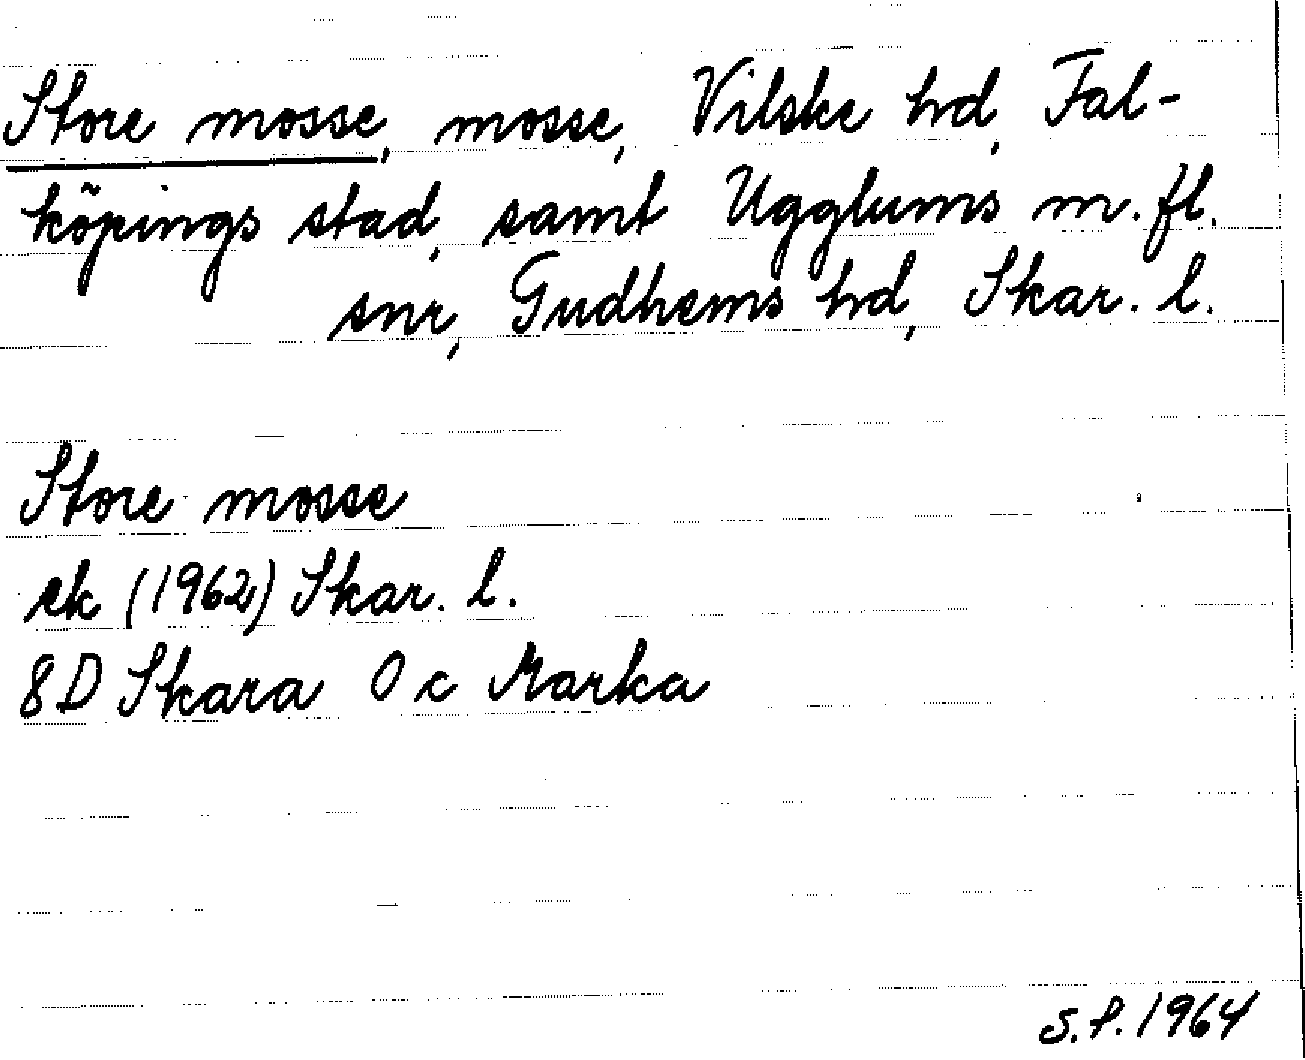 Store mosse, mosse, Vilske hd, Fal-
köpings stad, samt Ugglums m.fl.
snr, Gudhems hd, Skar. l.
Store mosse
ek (1962) Skar. l.
8D Skara 0 c Marka
S.P. 1964